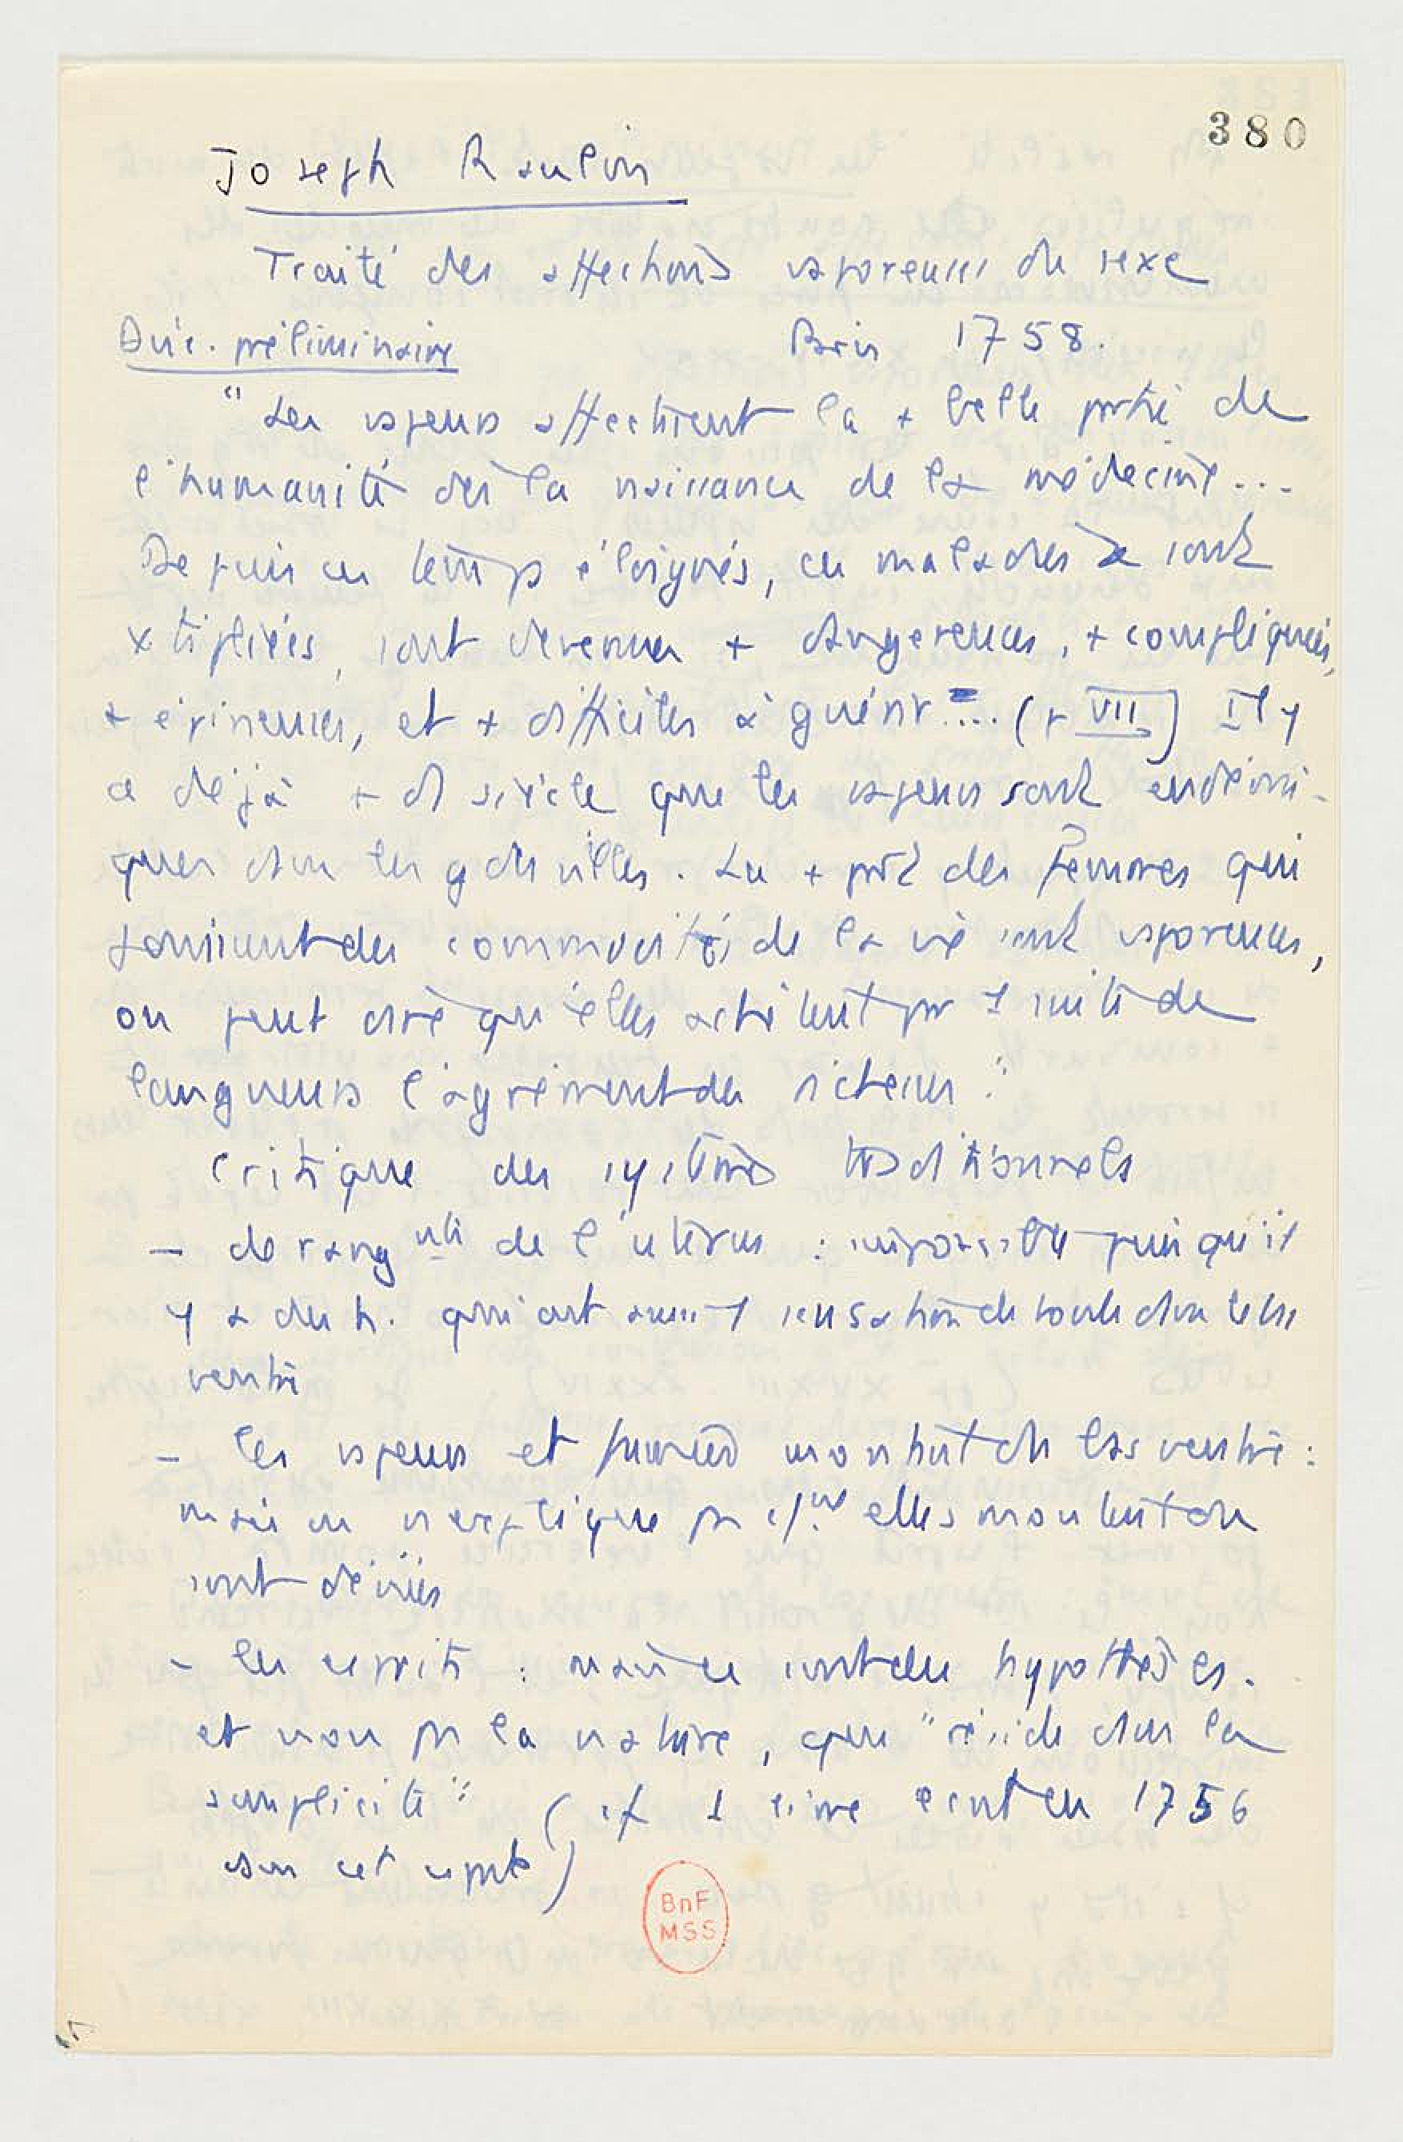 380
Joseph Raulin
Traité des affections vaporeuses du sexe
Disc. préliminaire Paris 1758.
"Les vapeurs affectèrent la + belle partie de
l'humanité dès la naissance de la médecine...
Depuis ces temps éloignés, ces maladies se sont
xtipliées, sont devenues + dangereuses, + compliquées,
+ épineuses, et + difficiles à guérir"... (p VII) Il y
a déjà + d'1 siècle que les vapeurs sont endémi-
ques dans les gdes villes. La + part des femmes qui
jouissent des commodités de la vie sont vaporeuses,
on peut dire qu'elles achètent par 1 suite de
langueurs l'agrément des richesses."
Critique des systèmes traditionnels
- dérangmts de l'utérus : impossible puisqu'il
y a des h. qui ont aussi 1 sensation de boule dans le bas
ventre
- les vapeurs et fumées montant du bas ventre :
mais on n'explique pas pquoi elles montent ou
sont déviées
- les esprits : mais ce sont des hypothèses.
et non pas la nature, qui "réside dans la
simplicité" (cf 1 livre écrit en 1756
sur cet esprit)
BnF
MSS